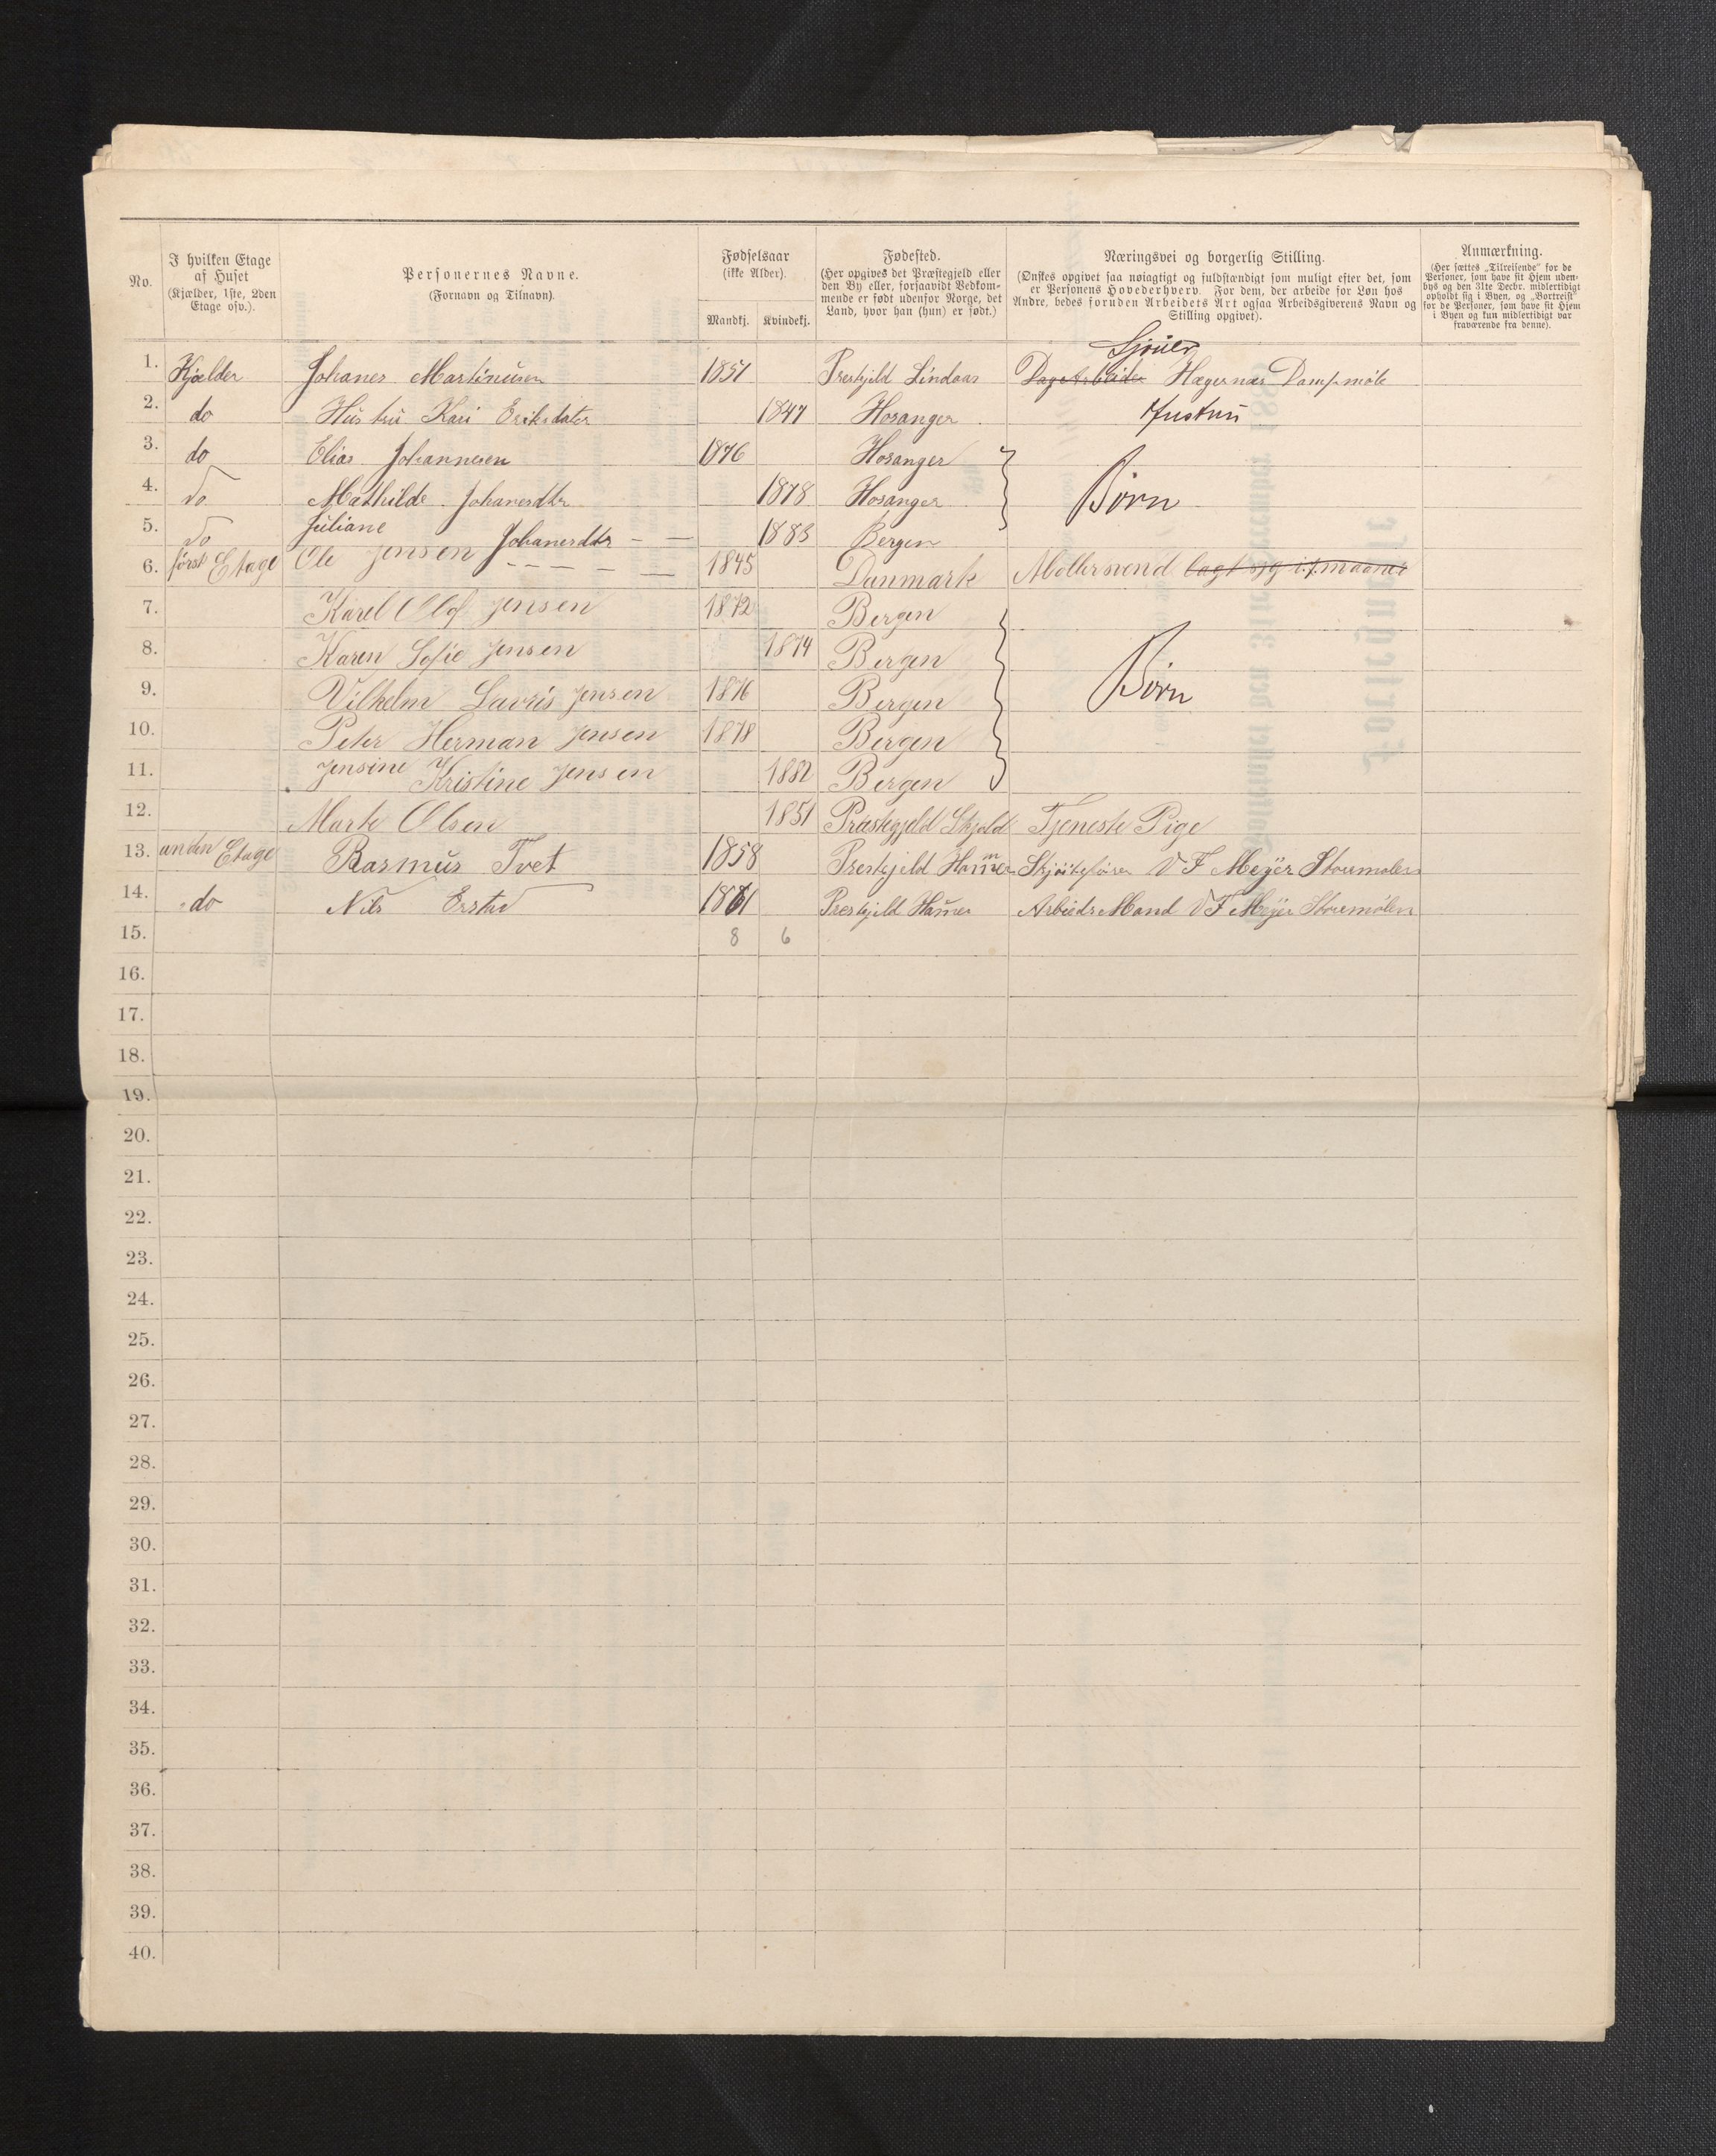 No.
I hvilken Etage
af Huset
(Kjælder, 1ste, 2den
Etage osv.).
Personernes Navne.
(Fornavn og Tilnavn).
Fødselsaar
(ikke Alder).
Mandkj. Kvindekj.
Fødested.
(Her opgives det Præstegjeld eller
den By eller, forsaavidt Vedkom-
mende er født udenfor Norge, det
Land, hvor han (hun) er født.)
Næringsvei og borgerlig Stilling.
(Ønskes opgivet saa nøiagtigt og fuldstændigt som muligt efter det, som
er Personens Hovederhverv. For dem, der arbeide for Løn hos
Andre, bedes foruden Arbeidets Art ogsaa Arbeidsgiverens Navn og
Stilling opgivet).
Anmærkning.
(Her sættes „Tilreisende" for de
Personer, som have sit Hjem uden-
bys og den 31te Decbr. midlertidigt
opholdt sig i Byen, og „Bortreist"
for de Personer, som have sit Hjem
i Byen og kun midlertidigt var
fraværende fra denne).
Sjouer
1. Kjælder Johanes Martinusen 1851 Prestjeld Lindaas DagsArbeider Hægernæs Dampmöle
2. do Hustru Kari Eriksdater 1847 Hosanger Hustru
3. do Elias Johannesen 1876 Hosanger
4. do Mathilde Johanesdtr 1878 Hosanger Børn
5. do Juliane Johanesdtr 1883 Bergen
6. først Etage Ole Jensen 1845 Danmark Møllersvend
7. Karel Olof Jensen 1872 Bergen
8. Karen Sofie Jensen 1874 Bergen
9. Vilhelm Lauris Jensen 1876 Bergen Børn
10. Peter Herman Jensen 1878 Bergen
11. Jensine Kristine Jensen 1882 Bergen
12. Marte Olsen 1851 Præstegjeld Skjold Tjeneste Pige
13. anden Etage Rasmus Tvet 1858 Prestjeld Hammer V F Meyer Storemølen
14. do Nils 1861 Prestjeld Hamer ArbiedsMand V F Meyer Storemølen
15. 8 6
16.
17.
18.
19.
20.
21.
22.
23.
24.
25.
26.
27.
28.
29.
30.
31.
32.
33.
34.
35.
36.
37.
38.
39.
40.